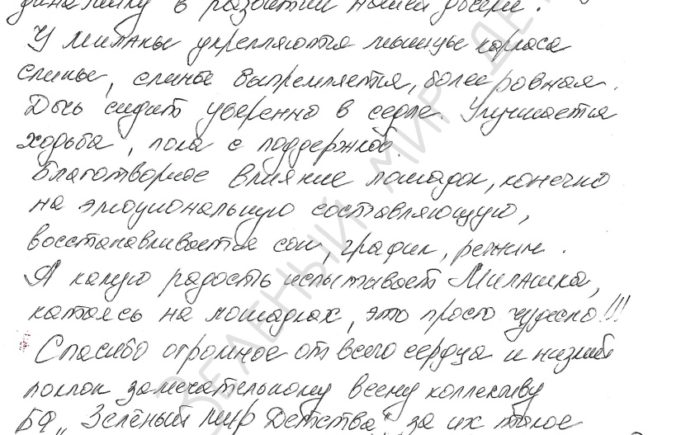 динамику в развитии нашей дочери.
У Миланы укрепляются мышцы корсаса
спины, спина выпремляется, более ровная.
Дочь сидит уверенно в седле. Улучшается
ходьба, пока с поддержкой.
Благотворное влияние лошадок, конечно
на эмоциональную составляющую,
восстанавливается сон, график, режим.
А какую радость испытывает Милашка,
катаясь на лошадках, это просто чудесно!!!
Спасибо огромное от всего сердца и низкий
поклон замечательному всему коллективу
БФ „Зелёный мир Детства" за их такое
ЗЕЛЕНЫЙ МИР ДЕ